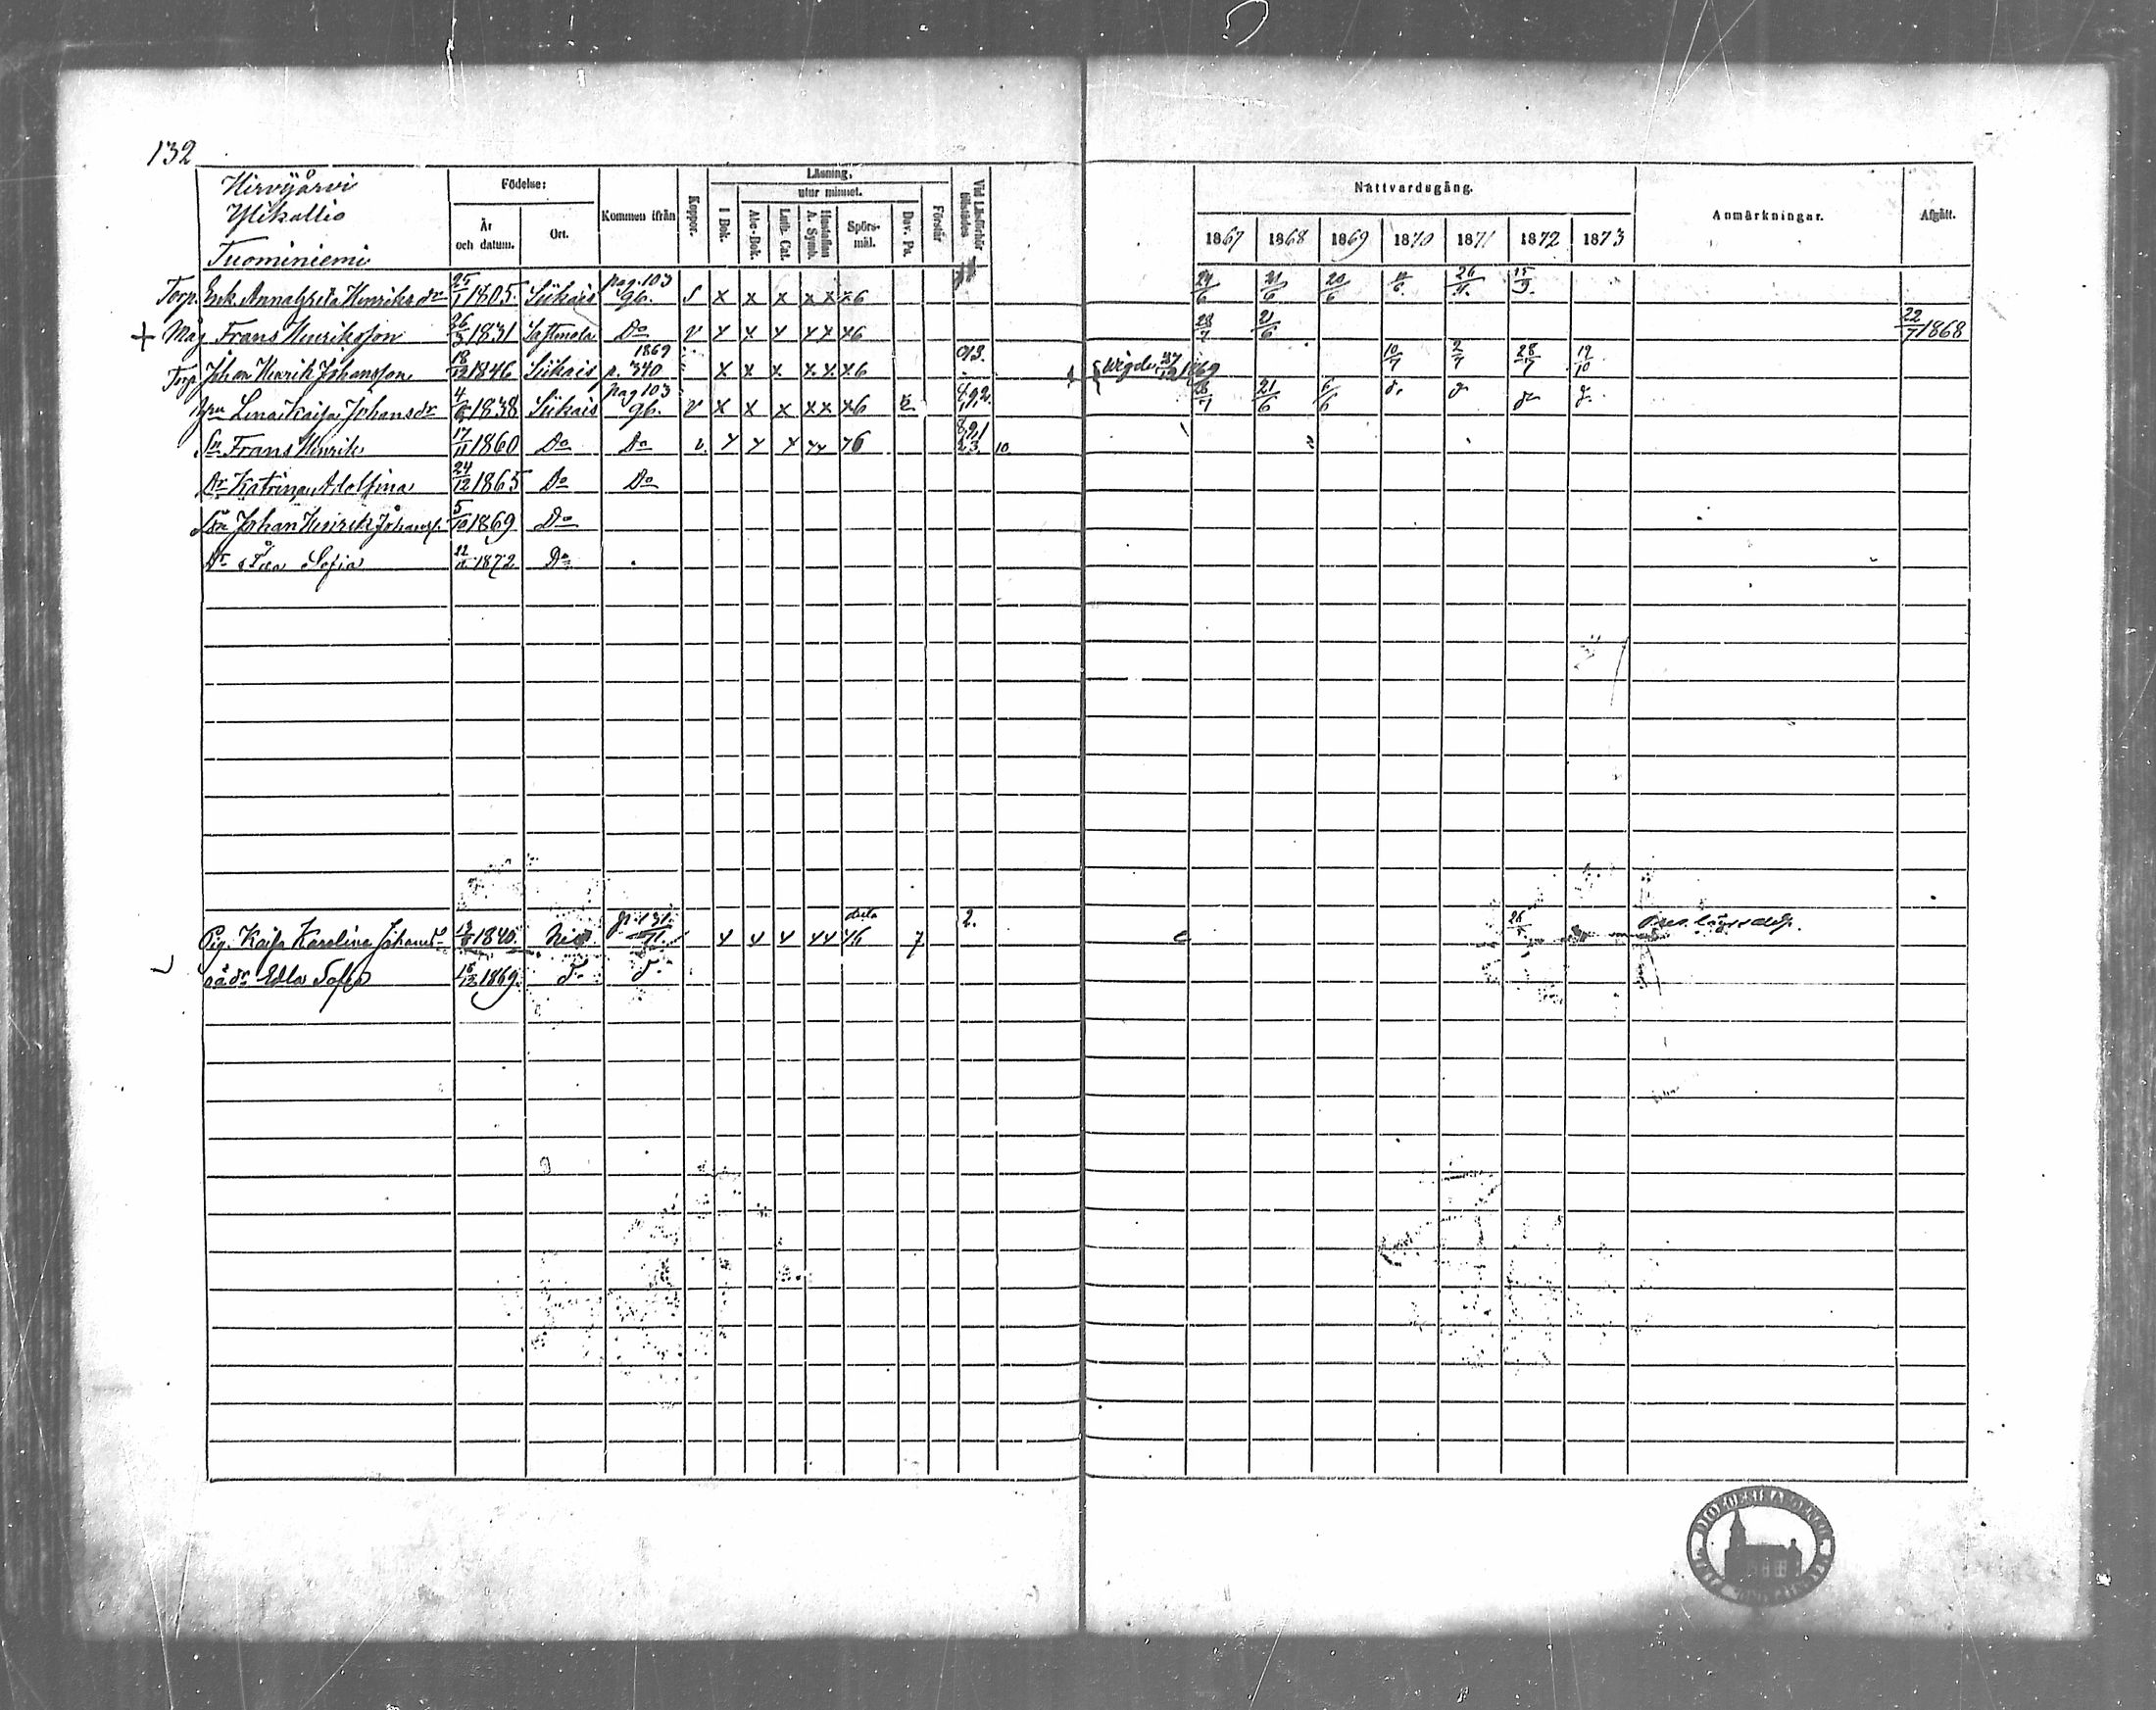 132
Hirvijärvi
Ylikallio
Tuominiemi
Födelse:
År och datum.
Ort.
Kommen ifrån
Koppor.
Läsning.
I Bok.
utur minnet.
Abc-Bok.
Luth. Cat.
Hustaflan A. Symb.
Spörsmål.
Dav. Ps.
Förstår
Vid Läsförhör tillstädes
Nattvardsgång.
1867 1868 1869 1870 1871 1872 1873
Anmärkningar.
Afgått.
Torp. Enk. Anna Greta Henriksdr 25/1 1805. Siikais pag. 103 96. S x x x x x x6 24/6 21/6 20/6 15/9.
+ Måg Frans Henriksson 26/3 1831 Sastmola Do v x x x x x x6 28/7 21/6 22/7 1868
Torp. Johan Henrik Johansson 18/12 1846 Siikais 1869 p. 340 x x x x x x6 Vigde 1869 10/7 2/7 28/7 19/10
Lena Kaisa Johansdr 1838 Siikais pag 103 96. v x x x x x x6 28/7 21/6 6/6
Sn Frans Henrik 17/11 1860 Do Do v. x x x x x x6 10
Dr Katrina Adolfina 24/12 1865 Do Do
Sn Johan Henrik Johans. 5/10 1869 Do
Dr Ida Sofia 1872 Do
Pig. Kaisa Karolina Johansdr 1840. p. 131. 71. x x x x x x6 7 2. 26
oä dr Edla Sofia 1869. d. d.